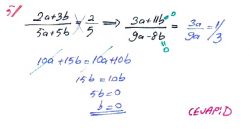 5)
(2a+3b)/(5a+5b) = 2/5 ⇒ (3a+11b→0)/(9a-8b→0) = 3a/9a = 1/3
10a+15b = 10a+10b
15b = 10b
5b = 0
b = 0
CEVAP: D